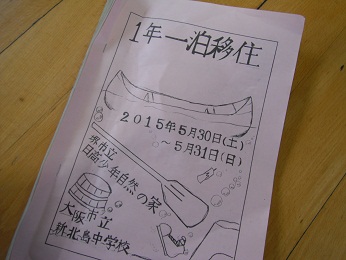 1年一泊移住
2015年5月30日(土)
～5月31日(日)
堺市立
日高少年自然の家
大阪市立
新北島中学校